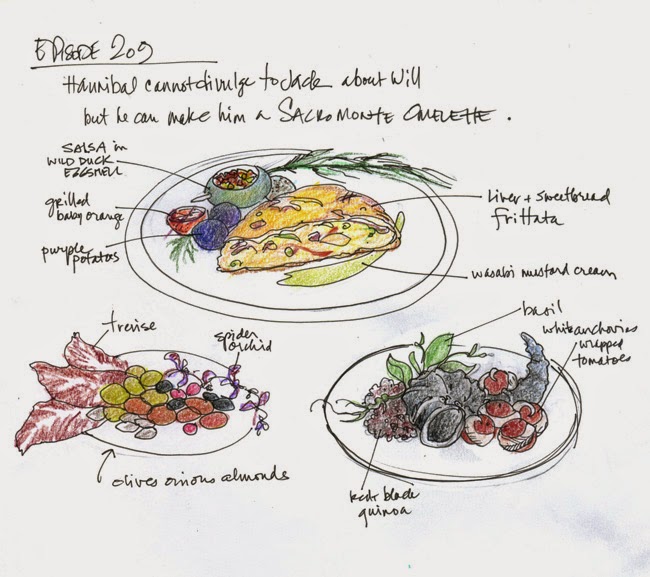 EPISODE 209
Hannibal cannot divulge to Jack about Will
but he can make him a SACROMONTE OMELETTE.
SALSA in
WILD DUCK
EGGSHELL
grilled
baby orange
purple
potatos
liver + sweetbread
frittata
wasabi mustard cream
trevise
spider
orchid
olives onions almonds
basil
white anchovies
wrapped
tomatoes
red + black
quinoa